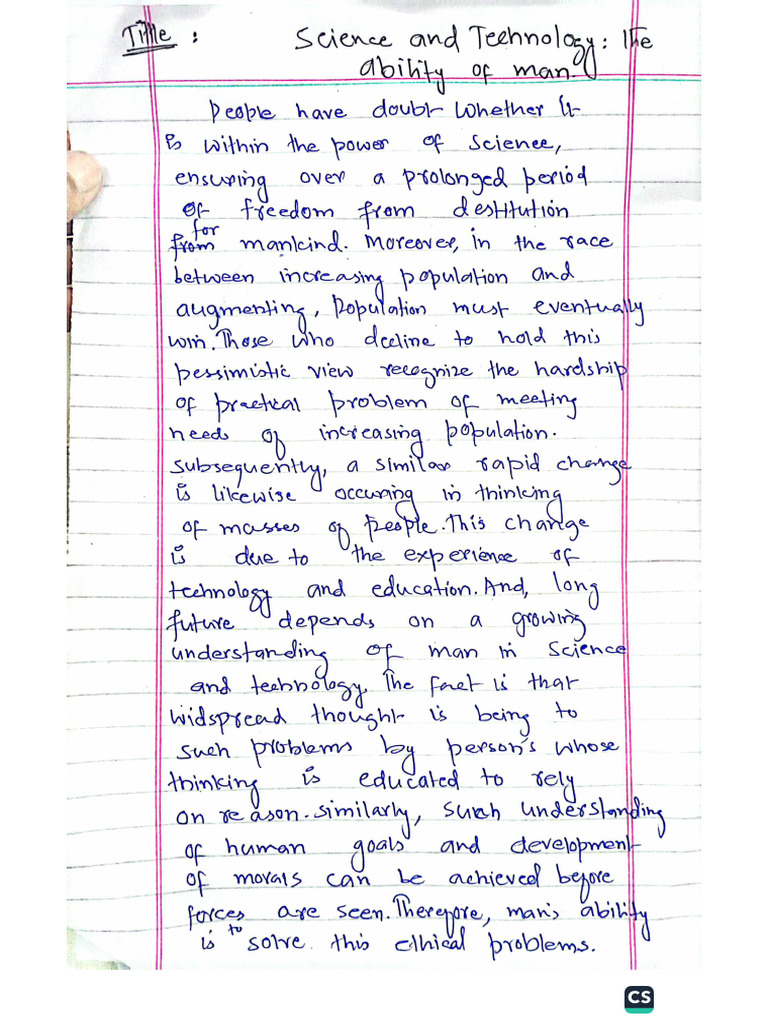 Title : Science and Technology: the
ability of man.
People have doubt whether it
is within the power of science,
ensuring over a prolonged period
of freedom from destitution
for
from mankind. Moreover, in the race
between increasing population and
augmenting, population must eventually
win. Those who decline to hold this
pessimistic view recognize the hardship
of practical problem of meeting
needs of increasing population.
Subsequently, a similar rapid change
is likewise occuring in thinking
of masses of people. This change
is due to the experience of
technology and education. And, long
future depends on a growing
understanding of man in science
and technology. The fact is that
widspread thought is being to
such problems by person's whose
thinking is educated to rely
on reason. similarly, such understanding
of human goals and development
of morals can be achieved before
forces are seen. Therefore, man's ability
is to solve this ethical problems.
CS